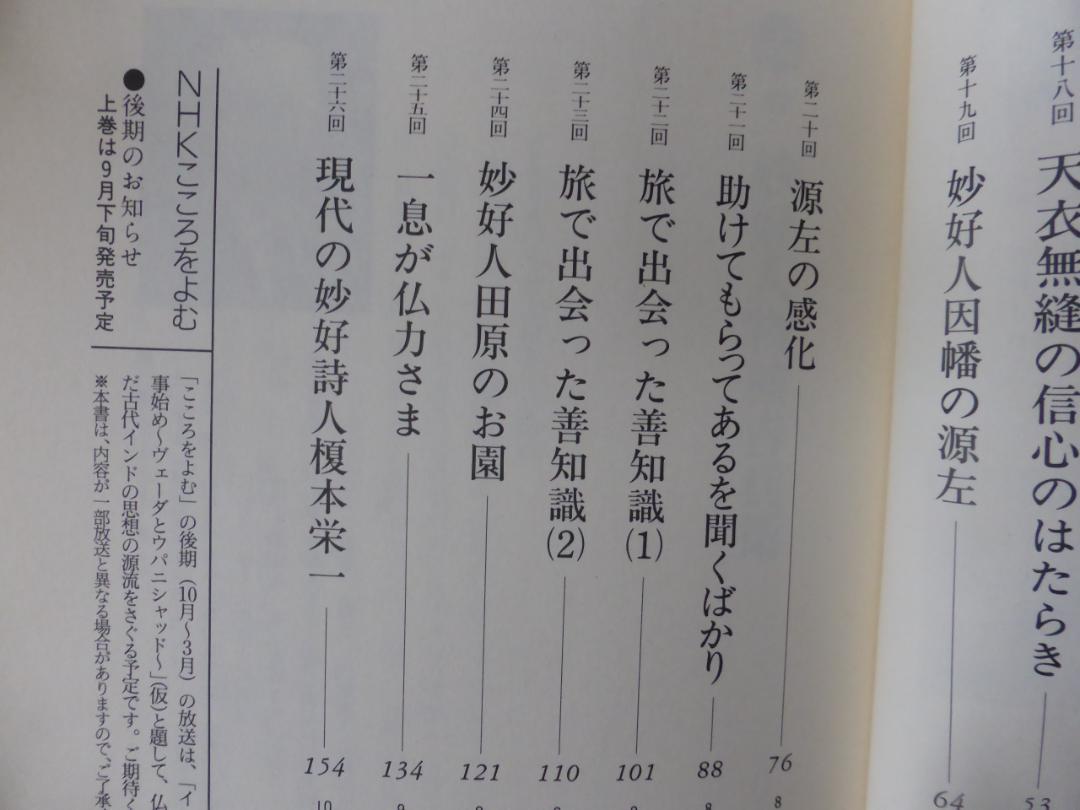 第十八回 天衣無縫の信心のはたらき 53
第十九回 妙好人因幡の源左 64
第二十回 源左の感化 76
8
第二十一回 助けてもらってあるを聞くばかり 88
8
第二十二回 旅で出会った善知識(1) 101
第二十三回 旅で出会った善知識(2) 110
第二十四回 妙好人田原のお園 121
第二十五回 一息が仏力さま 134
第二十六回 現代の妙好詩人榎本栄一 154
10
NHKこころをよむ
●後期のお知らせ
上巻は9月下旬発売予定
「こころをよむ」の後期(10月〜3月)の放送は、「イ
事始め〜ヴェーダとウパニシャッド〜」(仮)と題して、仏
だ古代インドの思想の源流をさぐる予定です。ご期待く
※本書は、内容が一部放送と異なる場合がありますので、ご了承